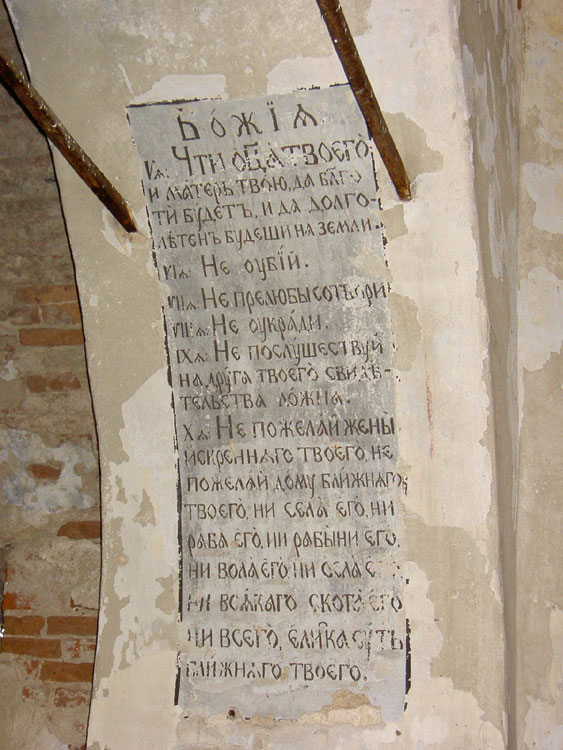 Бо́жїѧ.
Vѧ: Чти ѻ҆ц҃а̀ твоего̀
и матерь твою̀, да бл҃го
ти бꙋ́детъ, и да долго-
лѣтенъ бꙋ́деши на земли̑.
VIѧ: Не оуби́й.
VIIѧ: Не прелюбы̀ сотвори
VIIIѧ: Не оукра́ди.
IXѧ: Не послꙋшествꙋй
на дрꙋ́га твоего̀ свидѣ́-
тельства ло́жна.
Xѧ: Не пожела́й жены̀
и́скреннѧго твоего̀, не
пожела́й до́мꙋ бли́жнѧгѡ
твоего̀, ни села̀ его̀, ни
раба̀ его̀, ни рабы́ни его̀,
ни вола̀ его̀, ни ѻсла̀ е
ни всѧ́кагѡ скота̀ его̀
ни всего̀, е҆ли̑ка сꙋ́ть
бли́жнѧго твоего̀.